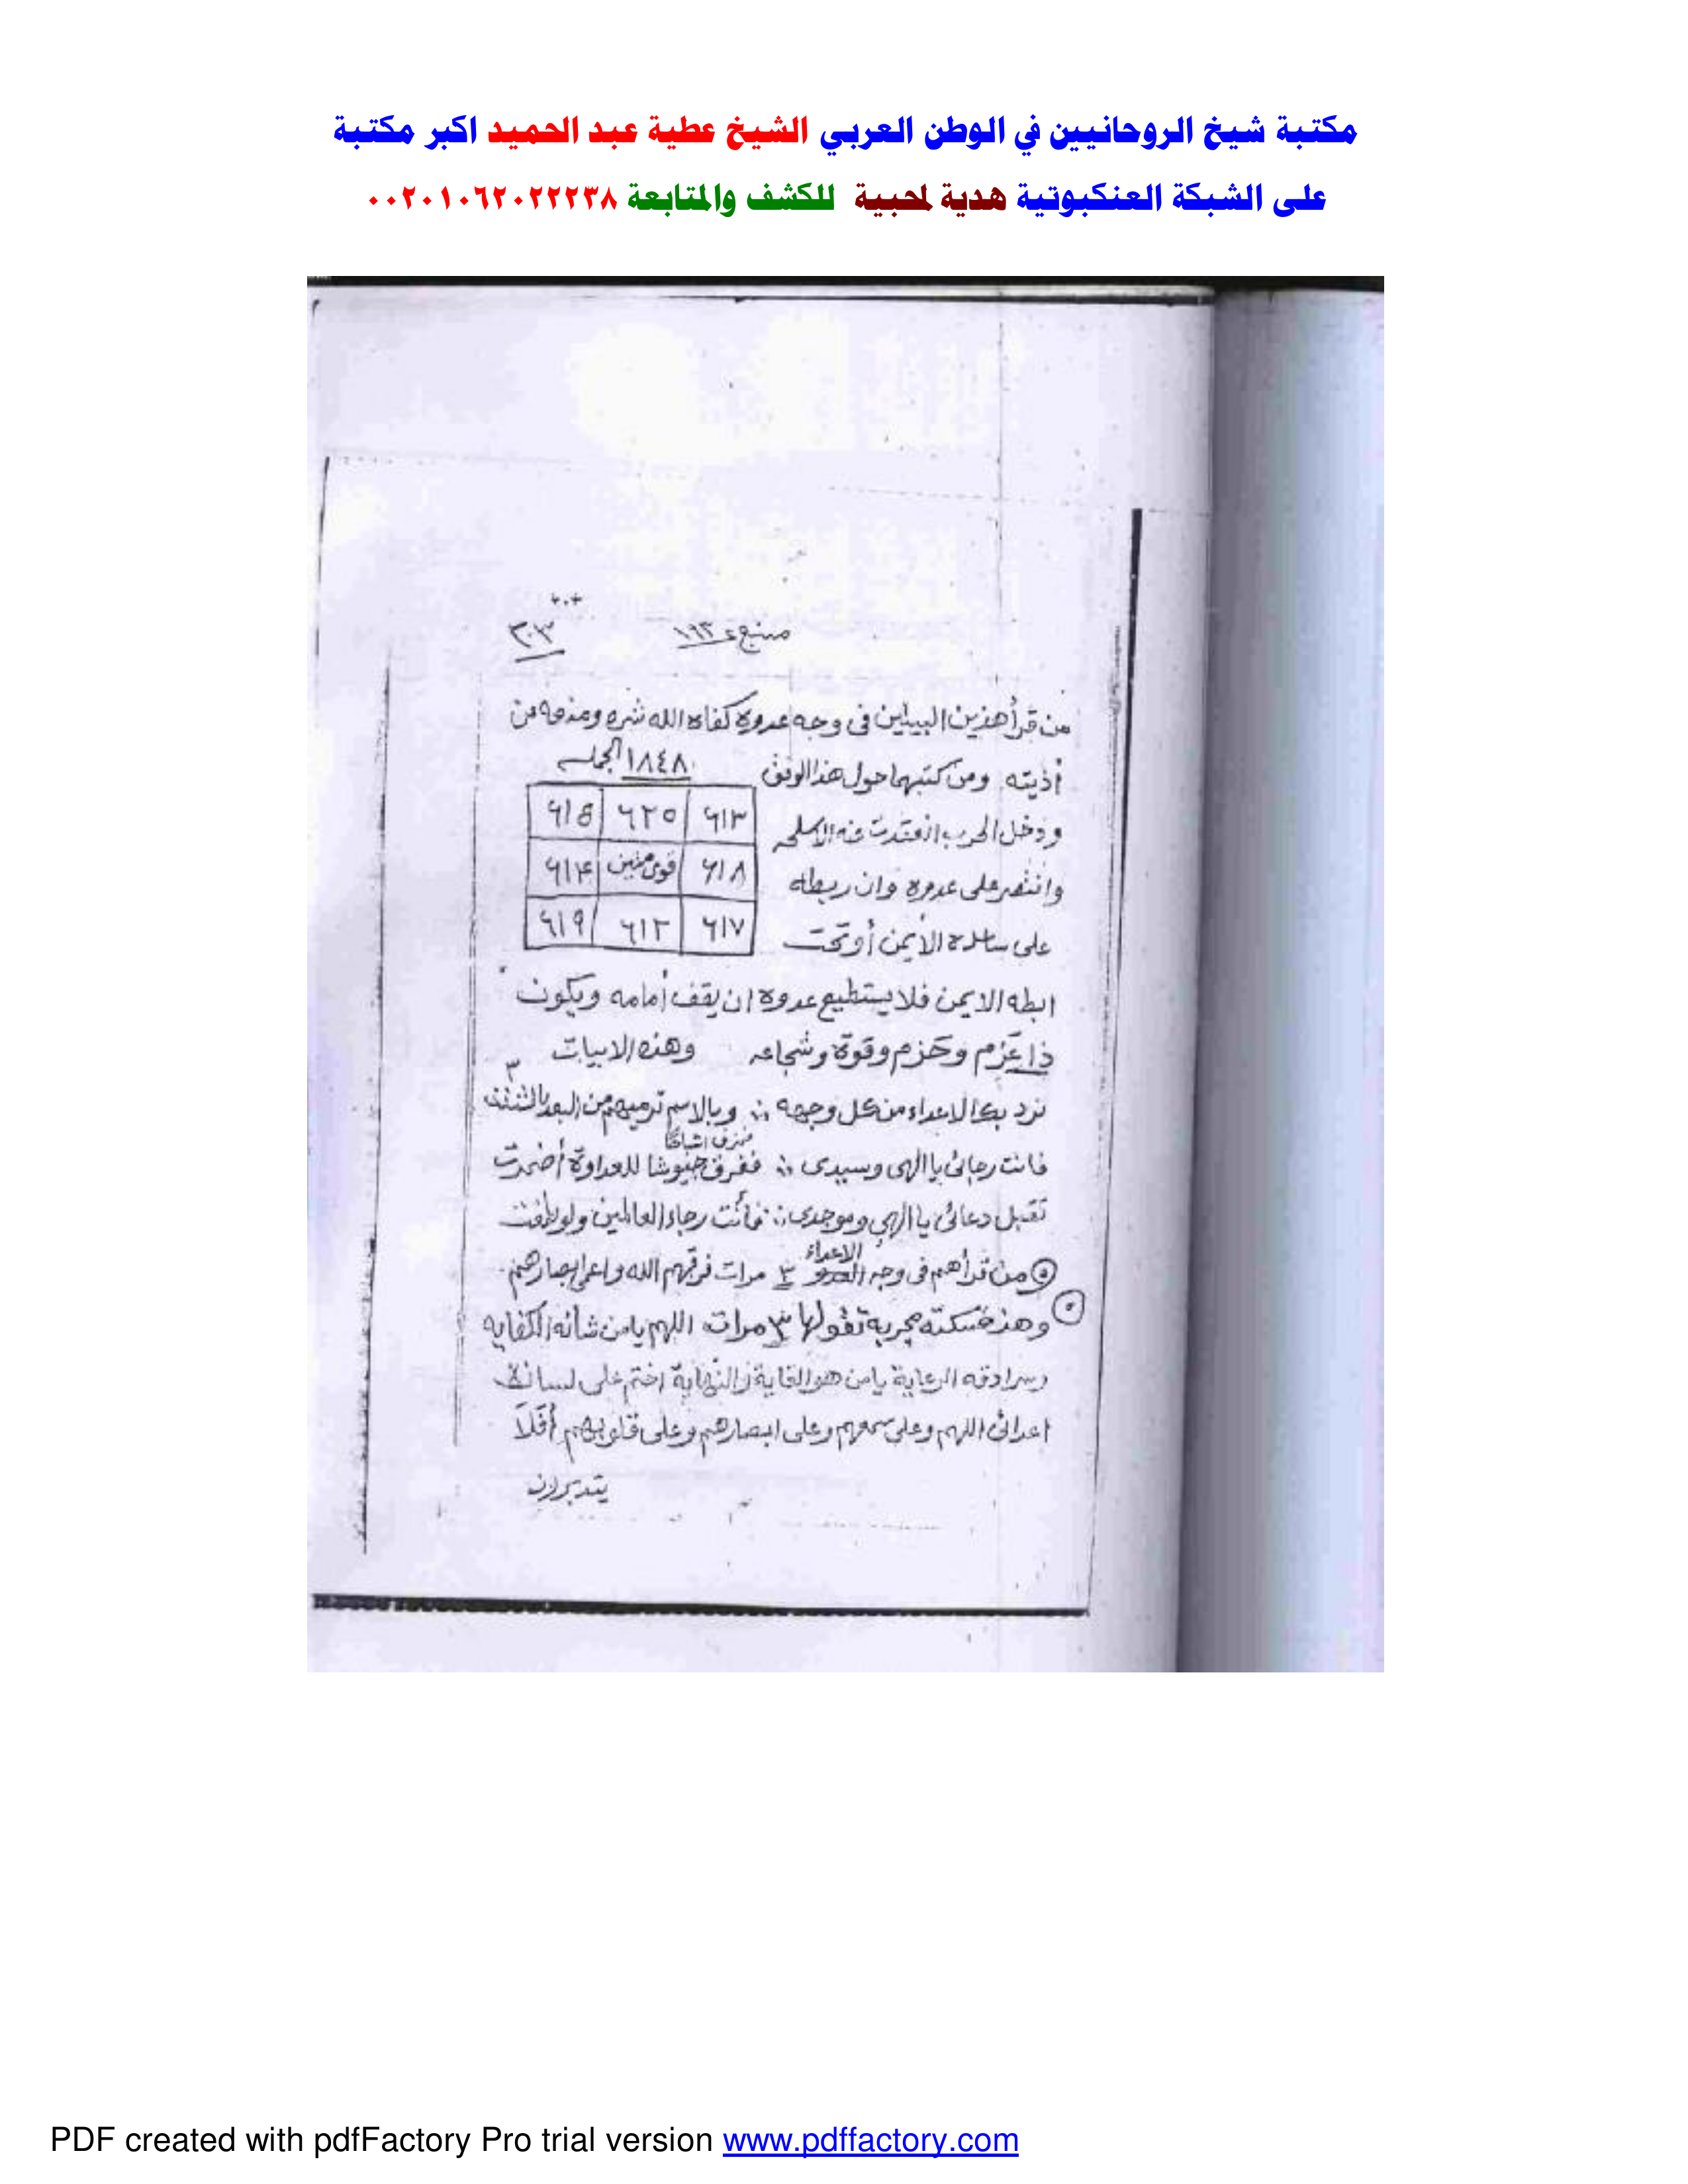 مكتبة شيخ الروحانيين في الوطن العربي الشيخ عطية عبد الحميد اكبر مكتبة
على الشبكة العنكبوتية هدية لمحبية للكشف والمتابعة ٠٠٢٠١٠٦٢٠٢٢٢٣٨
منبع ١٦٣ ٣٠٣
من قرأ هذين البيتين فى وجه عدوه كفاه الله شره ومنعه من
أذيته ومن كتبهما حول هذا الوفق ١٨٤٨ الجملة
ودخل الحرب انعقدت عنه الاسلحه
وانتصر على عدوه وان ربطه
على ساعده الأيمن أو تحت
٦١٣ ٦٢٥ ٦١٥
٦١٨ قوى متين ٦١٤
٦١٧ ٦١٢ ٦١٩
ابطه الايمن فلا يستطيع عدوه ان يقف أمامه ويكون
ذا عَزم وحَزم وقوة وشجاعه وهذه الابيات ٣
نرد بك الاعداء من كل وجهه وبالاسم ترميهم من البعد بالشتت
فانت رجائى يا الهى وسيدى ففرق جيوشا للعداوة أضمرت
تقبل دعائى يا الهي وموجدى فأنت رجاء العالمين ولو
من قرأهم فى وجه الاعداء ٣ مرات فرقهم الله واعمى ابصارهم
وهذه مجربة تقولها ٣ مرات اللهم يا من شانه الكفايه
وسرادقه الرعاية يا من هو الغاية والنهاية اختم على لسان
اعدائى اللهم وعلى سمعهم وعلى ابصارهم وعلى قلوبهم أفَلاَ
يتدبرون
PDF created with pdfFactory Pro trial version www.pdffactory.com